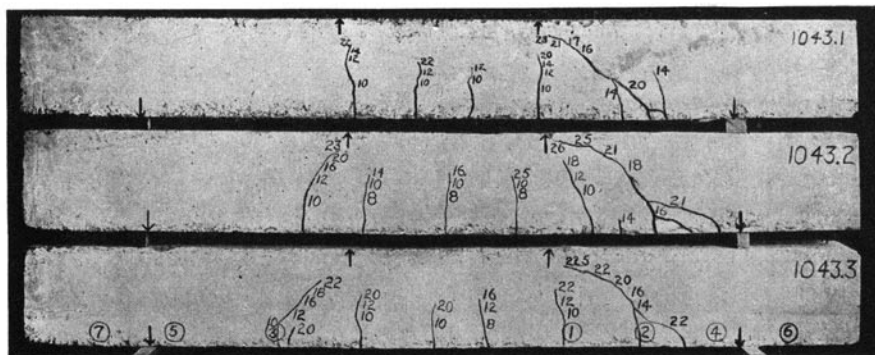 1043.1
22
14
12
10
22
12
10
12
10
20
14
12
10
23 21 17 16
14
20
14
1043.2
23
20
16
12
10
14
10
8
16
10
8
25
10
8
26 25 21
18
18
12
10
14
16
21
1043.3
22
18
16
12
10
20
20
12
10
20
10
16
12
8
22
12
10
22.5 22 20
16
14
22
⑦ ⑤ ③ ① ② ④ ⑥